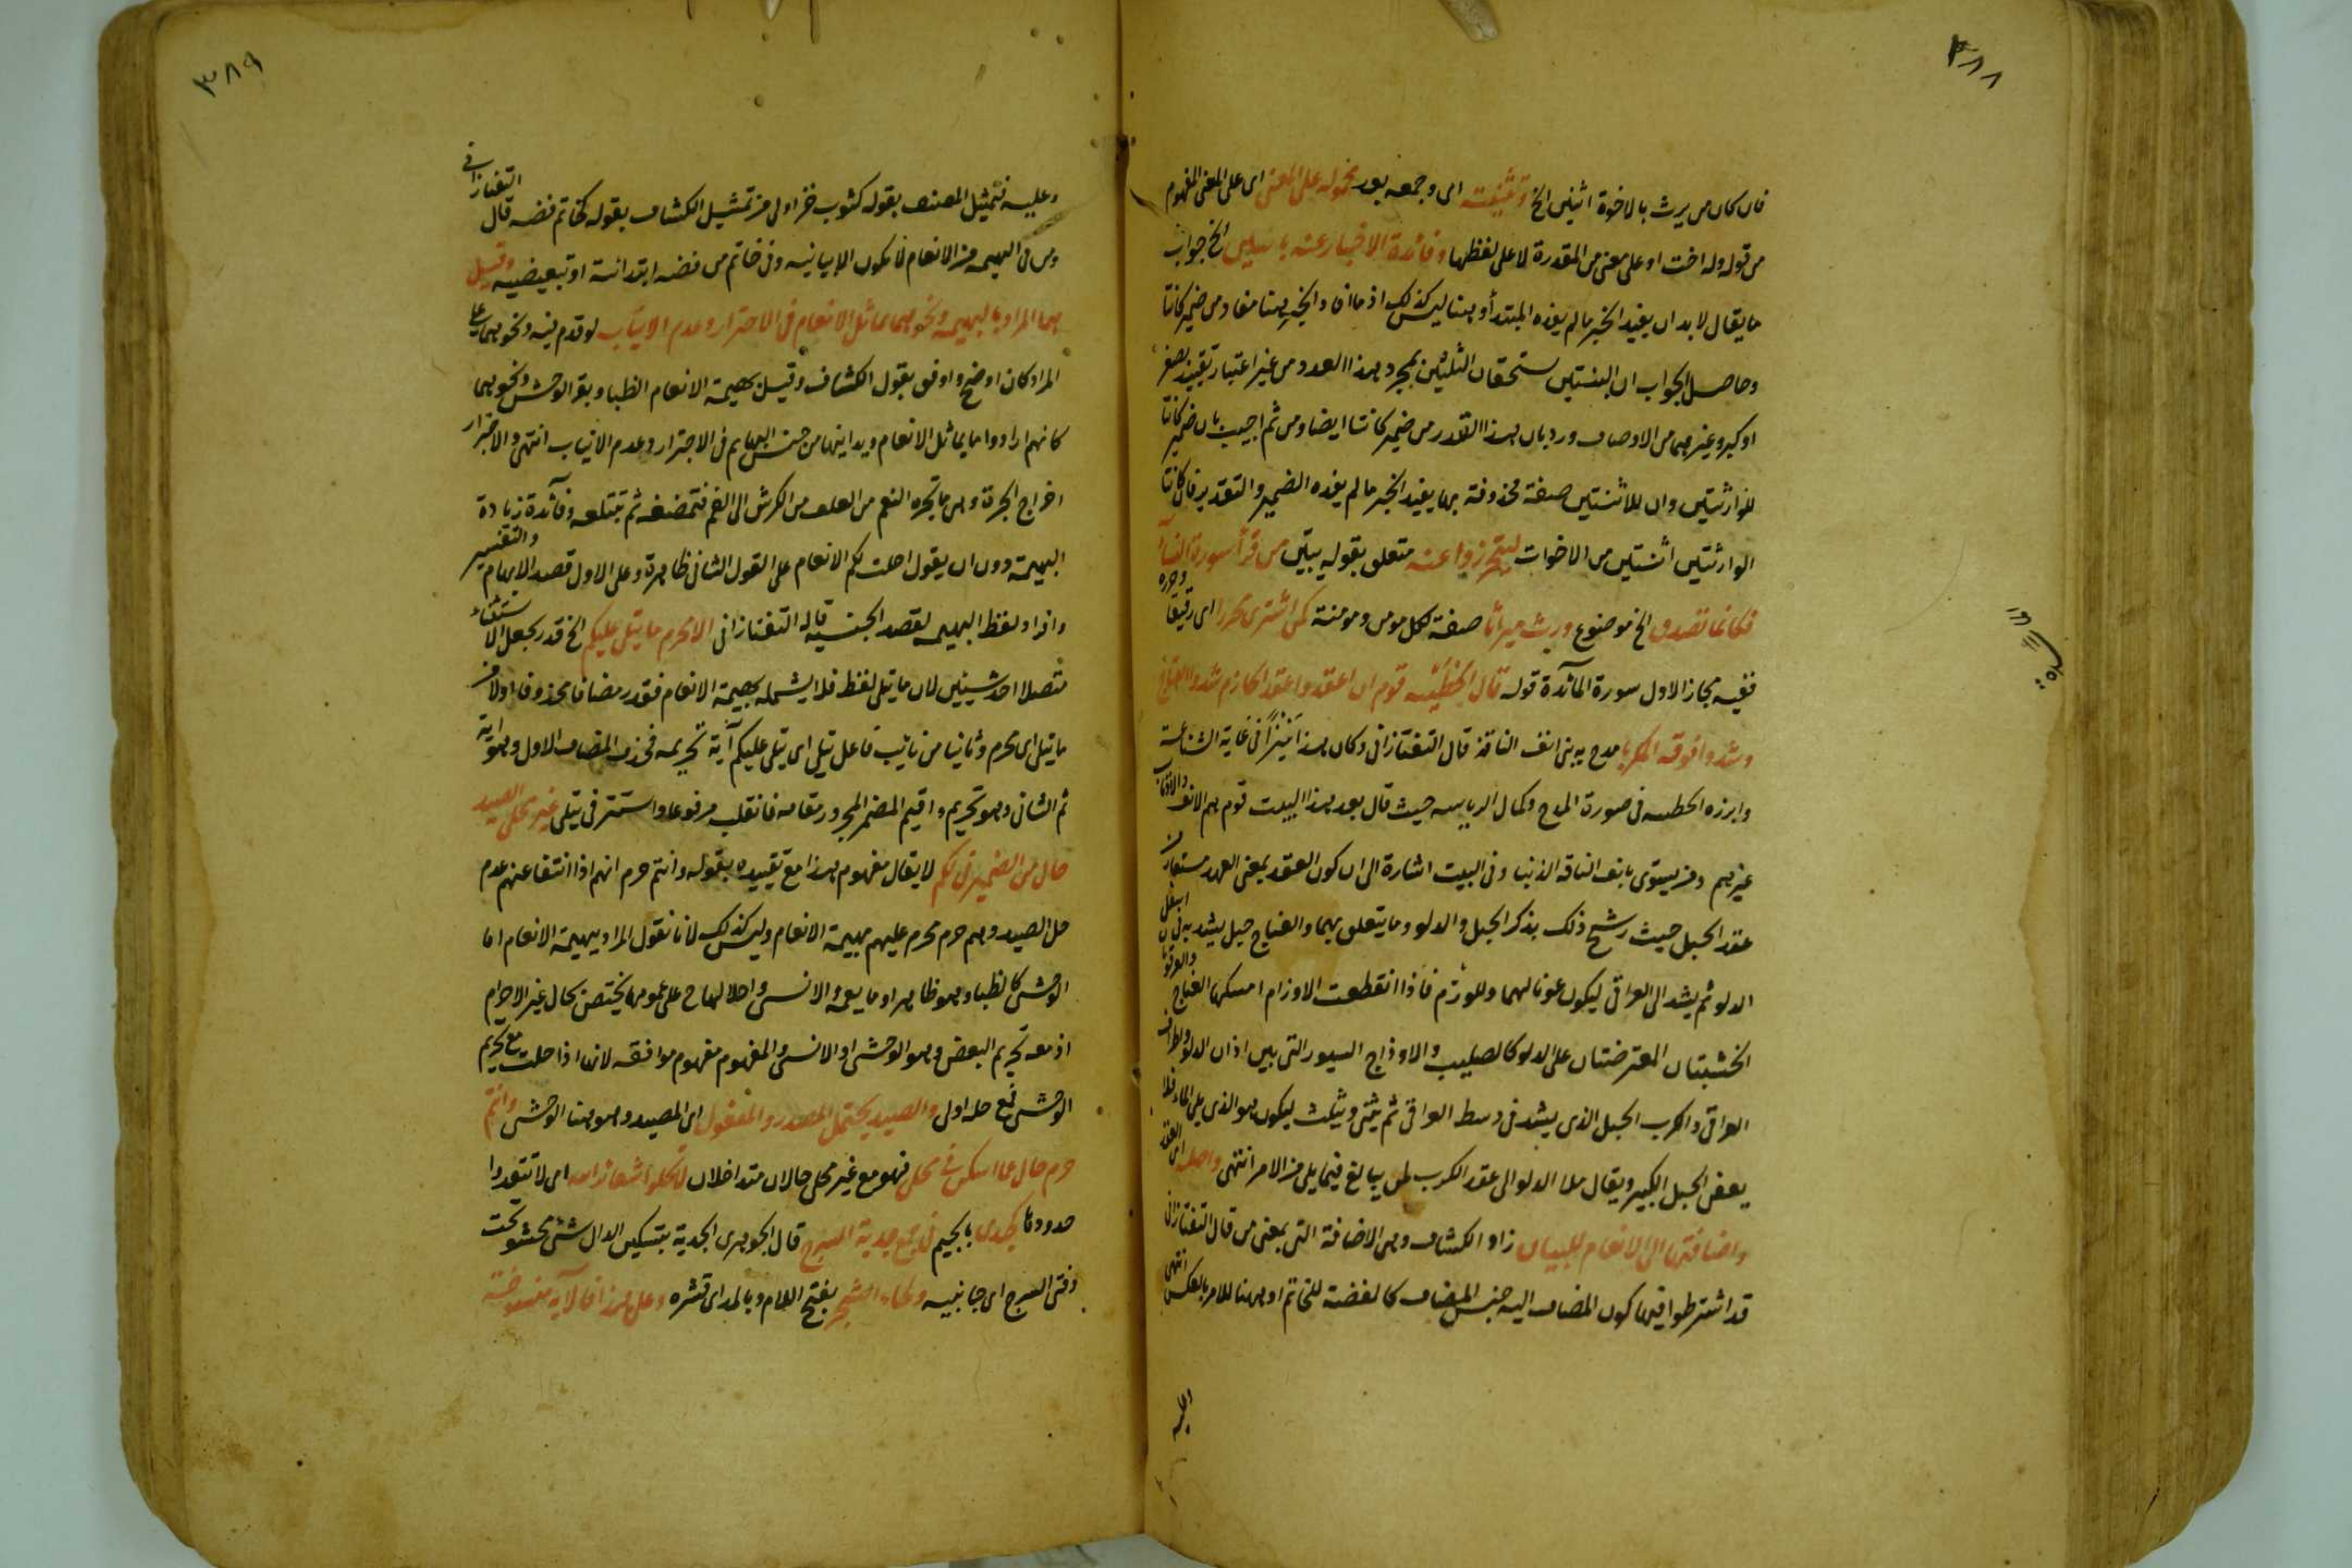 ٣٨٨
فان كان من يرث بالاخوة اثنين الخ وتثنيته اى وجمعه بعد محمولة على المعنى اى على المعنى المفهوم
من قوله وله اخت او على معنى من المقدرة لا على لفظها وفائدة الاخبار عنه باثنتين الخ جواب
ما يقال لا بد ان يفيد الخبر ما لم يفده المبتدأ وهنا ليس كذلك اذ ما افاده الخبر هنا مفاد من ضمير كانتا
وحاصل الجواب ان البنتين تستحقان الثلثين بمجرد هذا العدد من غير اعتبار تقييد بصغر
او كبر وغيرهما من الاوصاف ورد بان هذا القدر من ضمير كانتا ايضا ومن ثم اجيب بان ضمير كانتا
للوارثتين وان للاثنتين صفة محذوفة بها يفيد الخبر ما لم يفده الضمير والتقدير فان كانتا
الوارثتين اثنتين من الاخوات ليتحرزوا عنه متعلق بقوله يبين من قرأ سورة النسآ
فكانما تصدق الخ موضوع ورث ميراثا صفة لكل مومن ومومنة كمن اشترى محررا اى رقيقا وحرره
ففيه مجاز الاول سورة المآئدة قوله قال الحطيئه قوم ان اعقدوا عقدا لجارهم شدوا العناج
وشدوا فوقه الكربا مدح به بنى انف الناقة قال التفتازانى وكان هذا نبزا فى غاية الشناعة
وابرزه الحطيئه فى صورة المدح وكمال الرياسه حيث قال بعد هذا البيت قوم هم الانف والاذناب
غيرهم ومن يسوى بانف الناقه الذنبا وفى البيت اشارة الى ان كون العقد بمعنى العهد مستعار من
عقد الحبل حيث رشح ذلك بذكر الحبل والدلو وما يتعلق بهما والعناج حبل يشد به فى اسفل
الدلو ثم يشد الى العراقى ليكون عونا لهما وللوذم فاذا انقطعت الاوذام امسكها العناج والعرقوتان
الخشبتان المعترضتان على الدلو كالصليب والاوذاج السيور التى بين اذان الدلو واطراف
العراقى والكرب الحبل الذى يشد فى وسط العراقى ثم يثنى ويثلث ليكون هو الذى يلى الماء فلا
يعفن الحبل الكبير ويقال ملا الدلو الى عقد الكرب لمن يبالغ فيما يلى من الامر انتهى واصله اى العقد
واضافتها الى الانعام للبيان زاد الكشاف وهى الاضافة التى بمعنى من قال التفتازانى
قد اشترطوا فيها كون المضاف اليه جنس المضاف كالفضة للخاتم او ههنا للامر بالعكس انتهى
٣٨٩
وعليه فتمثيل المصنف بقوله كثوب خز اولى من تمثيل الكشاف بقوله كخاتم فضه قال التفتازانى
ومن فى البهيمه من الانعام لا تكون الا بيانيه وفى خاتم من فضه ابتدائية او تبعيضيه وقيل
هما المراد بالبهيمه ونحوهما مما تماثل الانعام فى الاجترار وعدم الانياب لو قدم فيه ونحوهما على
المراد كان اوضح واوفق بقول الكشاف وقيل بهيمة الانعام الظبا وبقر الوحش ونحوهما
كانهم ارادوا ما يماثل الانعام ويدانيها من جنس البهايم فى الاجترار وعدم الانياب انتهى والاجترار
اخراج الجرة وهى ما تجره النعم من العلف من الكرش الى الفم فتمضغه ثم تبتلعه وفآئدة زيادة
البهيمه دون ان يقول احلت لكم الانعام على القول الثانى ظاهرة وعلى الاول قصد الابهام والتفسير
وافراد لفظ البهيمه لقصد الجنسيه قاله التفتازانى الا محرم ما يتلى عليكم الخ قدر بجعل الاستثناء
متصلا احد شيئين لان ما يتلى لفظ فلا يشمله بهيمة الانعام فقدر مضافا محذوفا اولا من
ما يتلى اى محرم وثانيا من نائب فاعل يتلى اى يتلى عليكم آية تحريمه فحذف المضاف الاول وهو آية
ثم الثانى وهو تحريم واقيم المضمر المجرور مقامه فانقلب مرفوعا واستتر فى يتلى غير محلى الصيد
حال من الضمير فى لكم لا يقال مفهوم هذا مع تقييده بقوله وانتم حرم انهم اذا انتفا عنهم عدم
حل الصيد وهم حرم محرم عليهم بهيمة الانعام وليس كذلك لانا نقول المراد ببهيمة الانعام اما
الوحشى كالظبا وهو ظاهر او ما يعم الانسى واحلالها ح على عمومها يختص بحال غير الاحرام
اذ معه تحريم البعض وهو الوحشى او الانسى والمفهوم مفهوم موافقه لانها اذا حلت مع تحريم
الوحشى فمع حله اولى والصيد يحتمل المصدر والمفعول اى المصيد وهو هنا الوحشى وانتم
حرم حال مما استكن فى محلى فهو مع غير محلى حالان متداخلان لا تحلوا شعائر الله اى لا تتعدوا
حدودها كجدى بالجيم فى جمع جدية السرج قال الجوهرى الجدية بتسكين الدال شئ محشو تحت
دفتى السرج اى جانبيه ولحاء الشجر بفتح اللام وبالمد اى قشره وعلى هذا فالآية منسوخة